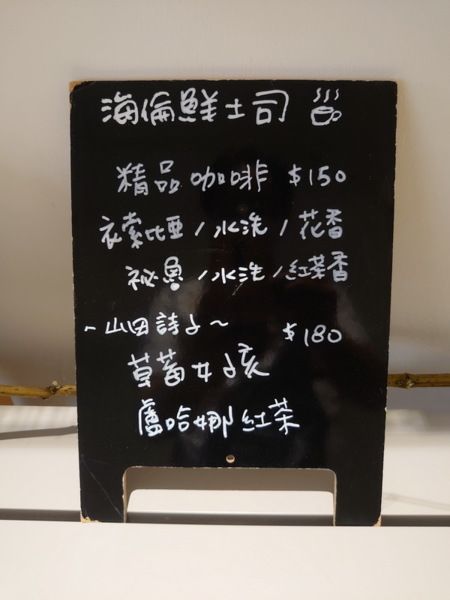 海倫鮮土司
精品咖啡 $150
衣索比亞/水洗/花香
祕魯/水洗/紅茶香
~山田詩子~ $180
草莓女孩
盧哈娜紅茶